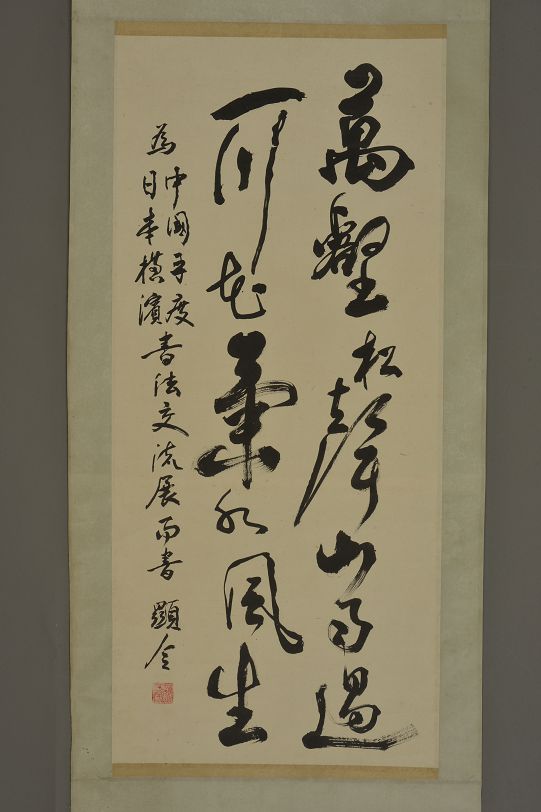 萬壑松聲山雨過
一川花氣水風生
為中國平度
日本橫濱
書法交流展而書 顯